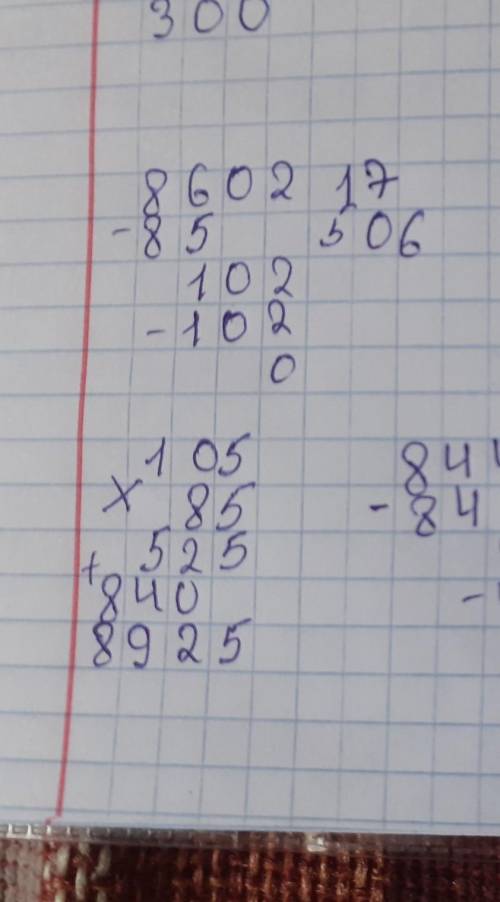 300
8602 17
- 85 506
102
- 102
0
105
x 85
+ 525
840
8925
844
- 84
-